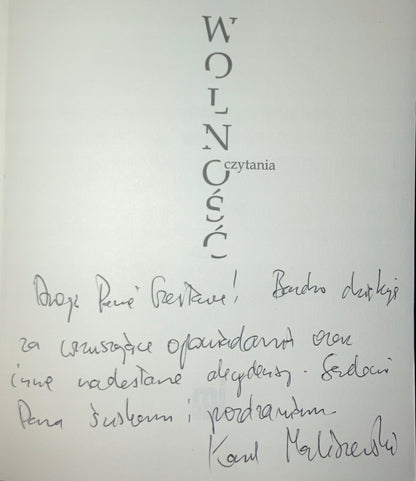 WOLNOŚĆ
czytania
Drogi Panie Czesławie! Bardzo dziękuję
za wzruszające opowiadania oraz
inne nadesłane . Serdecznie
Pana ściskam i pozdrawiam
Karol Maliszewski